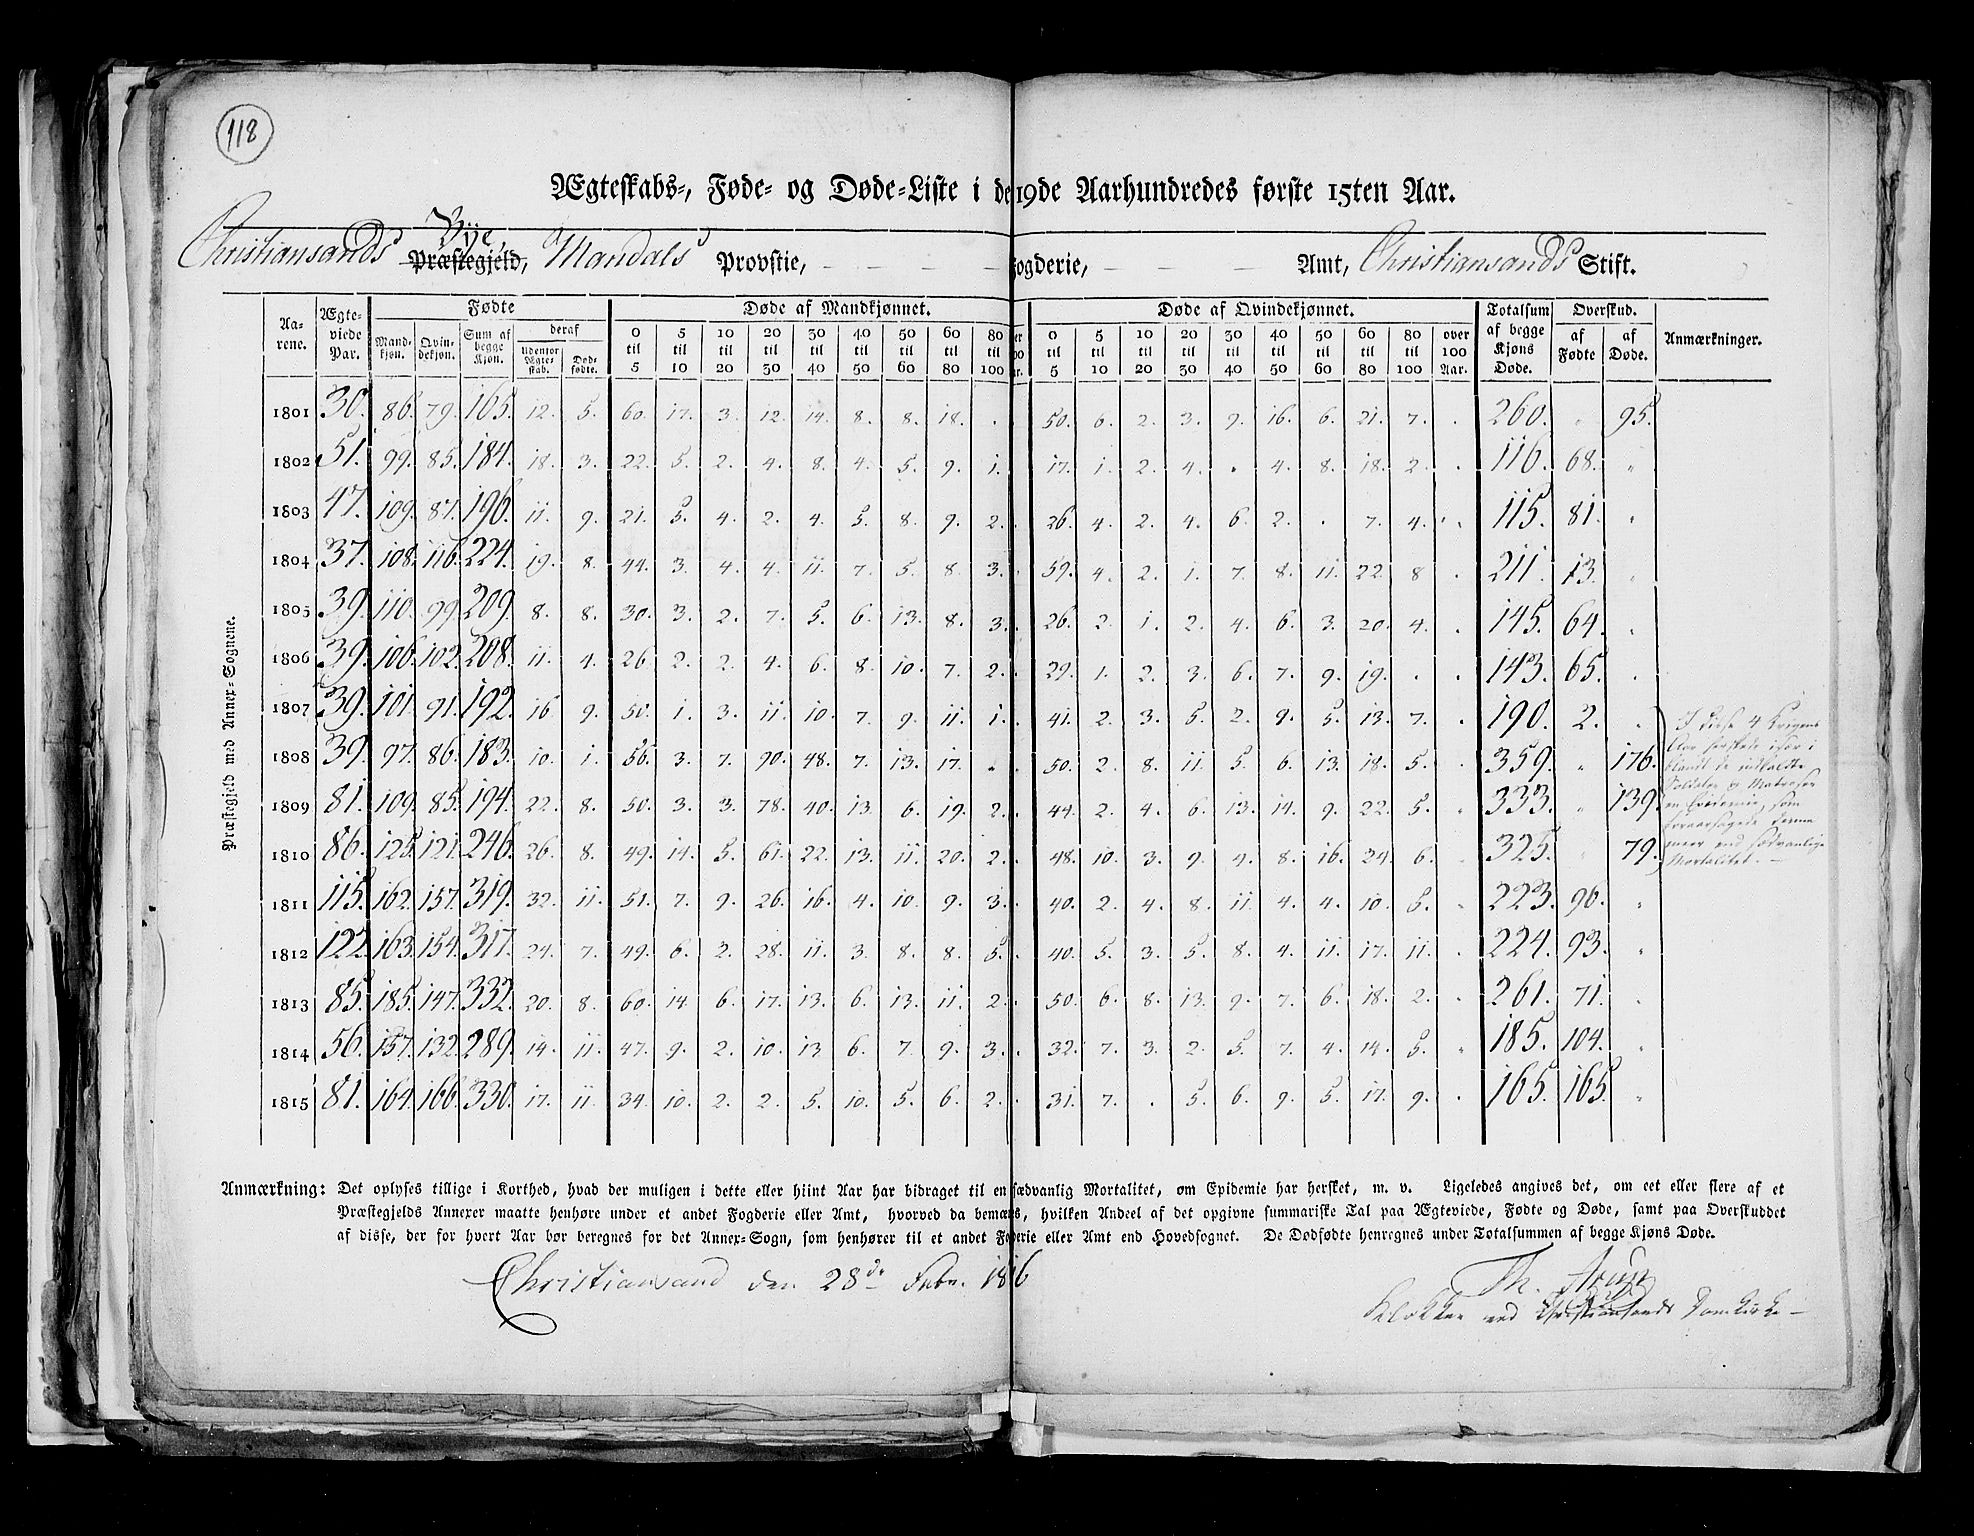 118
Ægteskabs-, Føde- og Døde-Liste i de 19de Aarhundredes første 15ten Aar.
Bÿe
Christiansands Præstegjeld, Mandals Provstie, — — — Fogderie, — — — Amt, Christiansands Stift.
Præstegjeld med Annex-Sognene.
Aarene. | Ægteviede Par. | Fødte | Døde af Mandkjønnet. | Døde af Qvindekjønnet. | Totalsum af begge Kjøns Døde. | Overskud. | Anmærkninger.
Mandkjøn. | Qvindekjøn. | Sum af begge Kjøn. | deraf | udenfor Ægteskab. | Dødfødte. | 0 til 5 | 5 til 10 | 10 til 20 | 20 til 30 | 30 til 40 | 40 til 50 | 50 til 60 | 60 til 80 | 80 til 100 | 0 til 5 | 5 til 10 | 10 til 20 | 20 til 30 | 30 til 40 | 40 til 50 | 50 til 60 | 60 til 80 | 80 til 100 | over 100 Aar. | af Fødte | af Døde.
1801 | 30. | 86. | 79. | 165. | 12. | 5. | 60. | 17. | 3. | 12. | 14. | 8. | 8. | 18. | . | . | 50. | 6. | 2. | 3. | 9. | 16. | 6. | 21. | 7. | . | 260. | " | 95.
1802 | 51. | 99. | 85. | 184. | 18. | 3. | 22. | 5. | 2. | 4. | 8. | 4. | 5. | 9. | 1. | | 17. | 1. | 2. | 4. | . | 4. | 8. | 18. | 2. | . | 116. | 68. | "
1803 | 47. | 109. | 87. | 196. | 11. | 9. | 21. | 5. | 4. | 2. | 4. | 5. | 8. | 9. | 2. | . | 26. | 4. | 2. | 4. | 6. | 2. | . | 7. | 4. | . | 115. | 81. | "
1804 | 37. | 108. | 116. | 224. | 19. | 8. | 44. | 3. | 4. | 4. | 11. | 7. | 5. | 8. | 3. | . | 59. | 4. | 2. | 1. | 7. | 8. | 11. | 22. | 8 | . | 211. | 13. | "
1805 | 39. | 110. | 99. | 209. | 8. | 8. | 30. | 3. | 2. | 7. | 5. | 6. | 13. | 8. | 3. | . | 26. | 2. | 1. | 2. | 4. | 6. | 3. | 20. | 4. | . | 145. | 64. | "
1806 | 39. | 106. | 102. | 208. | 11. | 4. | 26 | 2. | 2. | 4. | 6. | 8. | 10. | 7. | 2. | . | 29. | 1. | 2. | 3. | 6. | 7. | 9. | 19. | . | . | 143. | 65. | .
1807 | 39. | 101. | 91. | 192. | 16 | 9. | 50. | 1. | 3. | 11. | 10. | 7. | 9. | 11. | 1. | . | 41. | 2. | 3. | 5. | 2. | 9. | 5. | 13. | 7. | . | 190. | 2. | "
1808 | 39. | 97. | 86. | 183. | 10. | 1. | 56. | 3. | 7. | 90. | 48. | 7. | 13. | 17. | . | . | 50. | 2. | 8. | 11. | 5. | 6. | 13. | 18. | 5. | . | 359. | " | 176.
1809 | 81. | 109. | 85. | 194. | 22. | 8. | 50. | 3. | 3. | 78. | 40. | 13. | 6. | 19. | 2. | . | 44. | 2. | 4. | 6. | 13. | 14. | 9. | 22. | 5. | " | 333. | " | 139.
1810 | 86. | 125. | 121. | 246. | 26. | 8. | 49. | 14. | 5. | 61. | 22. | 13. | 11. | 20. | 2. | . | 48. | 10. | 3. | 9. | 4. | 8. | 16. | 24. | 6. | . | 325. | " | 79.
1811 | 115. | 162. | 157. | 319. | 32. | 11. | 51. | 7. | 9. | 26. | 16. | 4. | 10. | 9. | 3. | . | 40. | 2. | 4. | 8. | 11. | 4. | 4. | 10. | 5. | " | 223. | 96. | "
1812 | 122. | 163. | 154. | 317. | 24. | 7. | 49. | 6. | 2. | 28. | 11. | 3. | 8. | 8. | 5. | . | 40. | 5. | 3. | 5. | 8. | 4. | 11. | 17. | 11. | . | 224. | 93. | "
1813 | 85. | 185. | 147. | 332. | 20. | 8. | 60. | 14 | 6. | 17. | 13. | 6. | 13. | 11. | 2. | . | 50. | 6. | 8. | 13. | 9. | 7. | 6. | 18. | 2. | . | 261. | 71. | "
1814 | 56. | 157. | 132. | 289. | 14. | 11. | 47. | 9. | 2. | 10. | 13 | 6. | 7. | 9. | 3. | . | 32. | 7. | 3. | 2. | 5. | 7. | 4. | 14. | 5. | " | 185. | 104. | "
1815 | 81. | 164. | 166. | 330. | 17. | 11. | 34. | 10. | 2. | 2. | 5. | 10. | 5. | 6. | 2. | . | 31. | 7. | . | 5. | 6. | 9. | 5. | 17. | 9. | . | 165. | 165. | "
I disse 4 Krigens
Aar herskede især i
blandt de indkaldte
Soldater og Matroser
en Epidemie, som
foraarsagede denne
meer end sædvanlige
Mortalitet. —
Anmærkning: Det oplyses tillige i Korthed, hvad der muligen i dette eller hiint Aar har bidraget til en sædvanlig Mortalitet, om Epidemie har hersket, m. v. Ligeledes angives det, om eet eller flere af et
Præstegjelds Annexer maatte henhøre under et andet Fogderie eller Amt, hvorved da bemærkes, hvilken Andeel af det opgivne summariske Tal paa Ægteviede, Fødte og Døde, samt paa Overskuddet
af disse, der for hvert Aar bør beregnes for det Annex-Sogn, som henhører til et andet Fogderie eller Amt end Hovedsognet. De Dødfødte henregnes under Totalsummen af begge Kjøns Døde.
Christiansand den 28de Febr. 1816
Th.
Klokker ved Christiansands Domkirke —